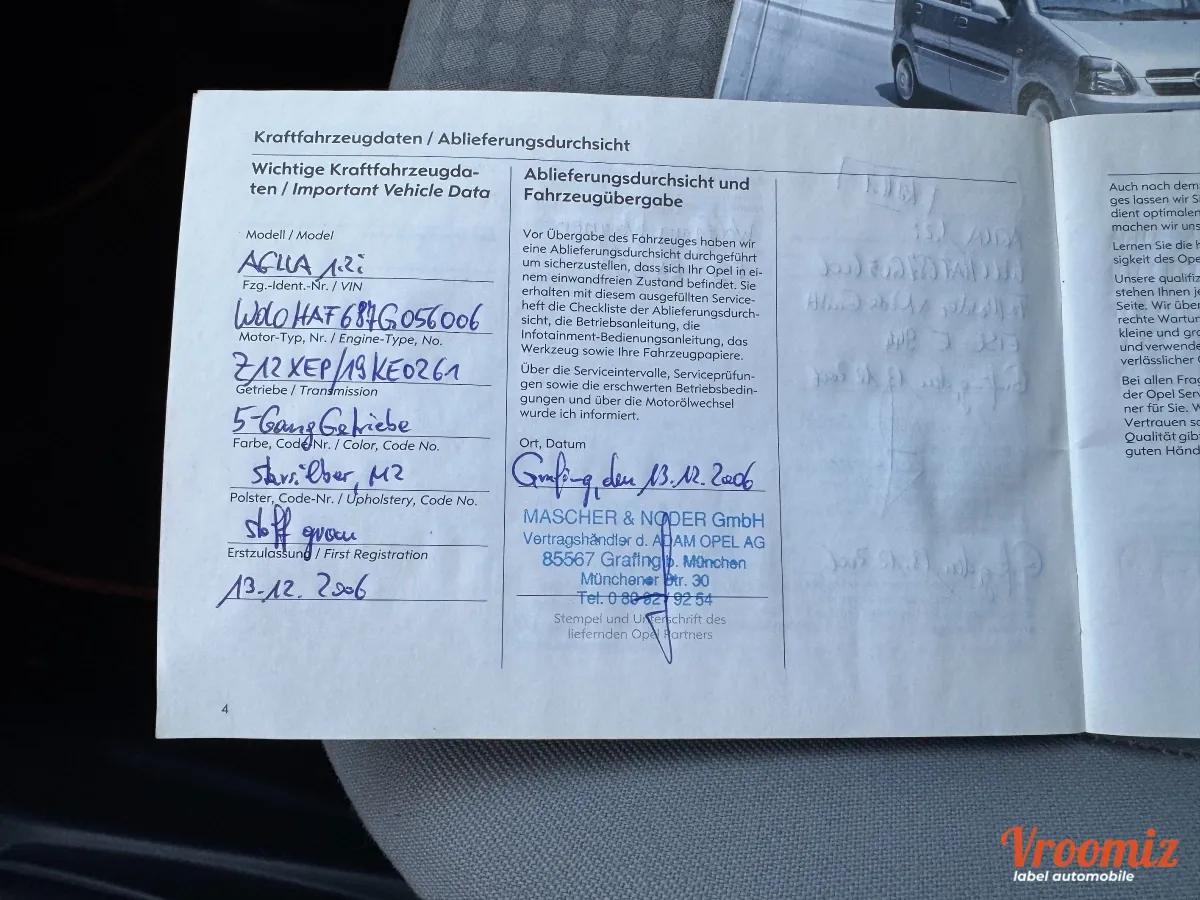 Kraftfahrzeugdaten / Ablieferungsdurchsicht
Wichtige Kraftfahrzeugda-
ten / Important Vehicle Data
Modell / Model
AGILA 1.2i
Fzg.-Ident.-Nr. / VIN
W0L0HAF687G056006
Motor-Typ, Nr. / Engine-Type, No.
Z12XEP/19KE0261
Getriebe / Transmission
5-Gang Getriebe
Farbe, Code-Nr. / Color, Code No.
Starsilber, M2
Polster, Code-Nr. / Upholstery, Code No.
Stoff grau
Erstzulassung / First Registration
13.12. 2006
4
Ablieferungsdurchsicht und
Fahrzeugübergabe
Vor Übergabe des Fahrzeuges haben wir
eine Ablieferungsdurchsicht durchgeführt
um sicherzustellen, dass sich Ihr Opel in ei-
nem einwandfreien Zustand befindet. Sie
erhalten mit diesem ausgefüllten Service-
heft die Checkliste der Ablieferungsdurch-
sicht, die Betriebsanleitung, die
Infotainment-Bedienungsanleitung, das
Werkzeug sowie Ihre Fahrzeugpapiere.
Über die Serviceintervalle, Serviceprüfun-
gen sowie die erschwerten Betriebsbedin-
gungen und über die Motorölwechsel
wurde ich informiert.
Ort, Datum
Grafing, den 13.12.2006
MASCHER & NODER GmbH
Vertragshändler d. ADAM OPEL AG
85567 Grafing b. München
Münchener Str. 30
Tel. 0 80 92 / 92 54
Stempel und Unterschrift des
liefernden Opel Partners
Auch nach dem
ges lassen wir S
dient optimalen
machen wir uns
Lernen Sie die h
sigkeit des Ope
Unsere qualifiz
stehen Ihnen je
Seite. Wir über
rechte Wartun
kleine und gro
und verwende
verlässlicher
Bei allen Frag
der Opel Serv
ner für Sie. W
Vertrauen so
Qualität gibt
guten Händ
Vroomiz
label automobile